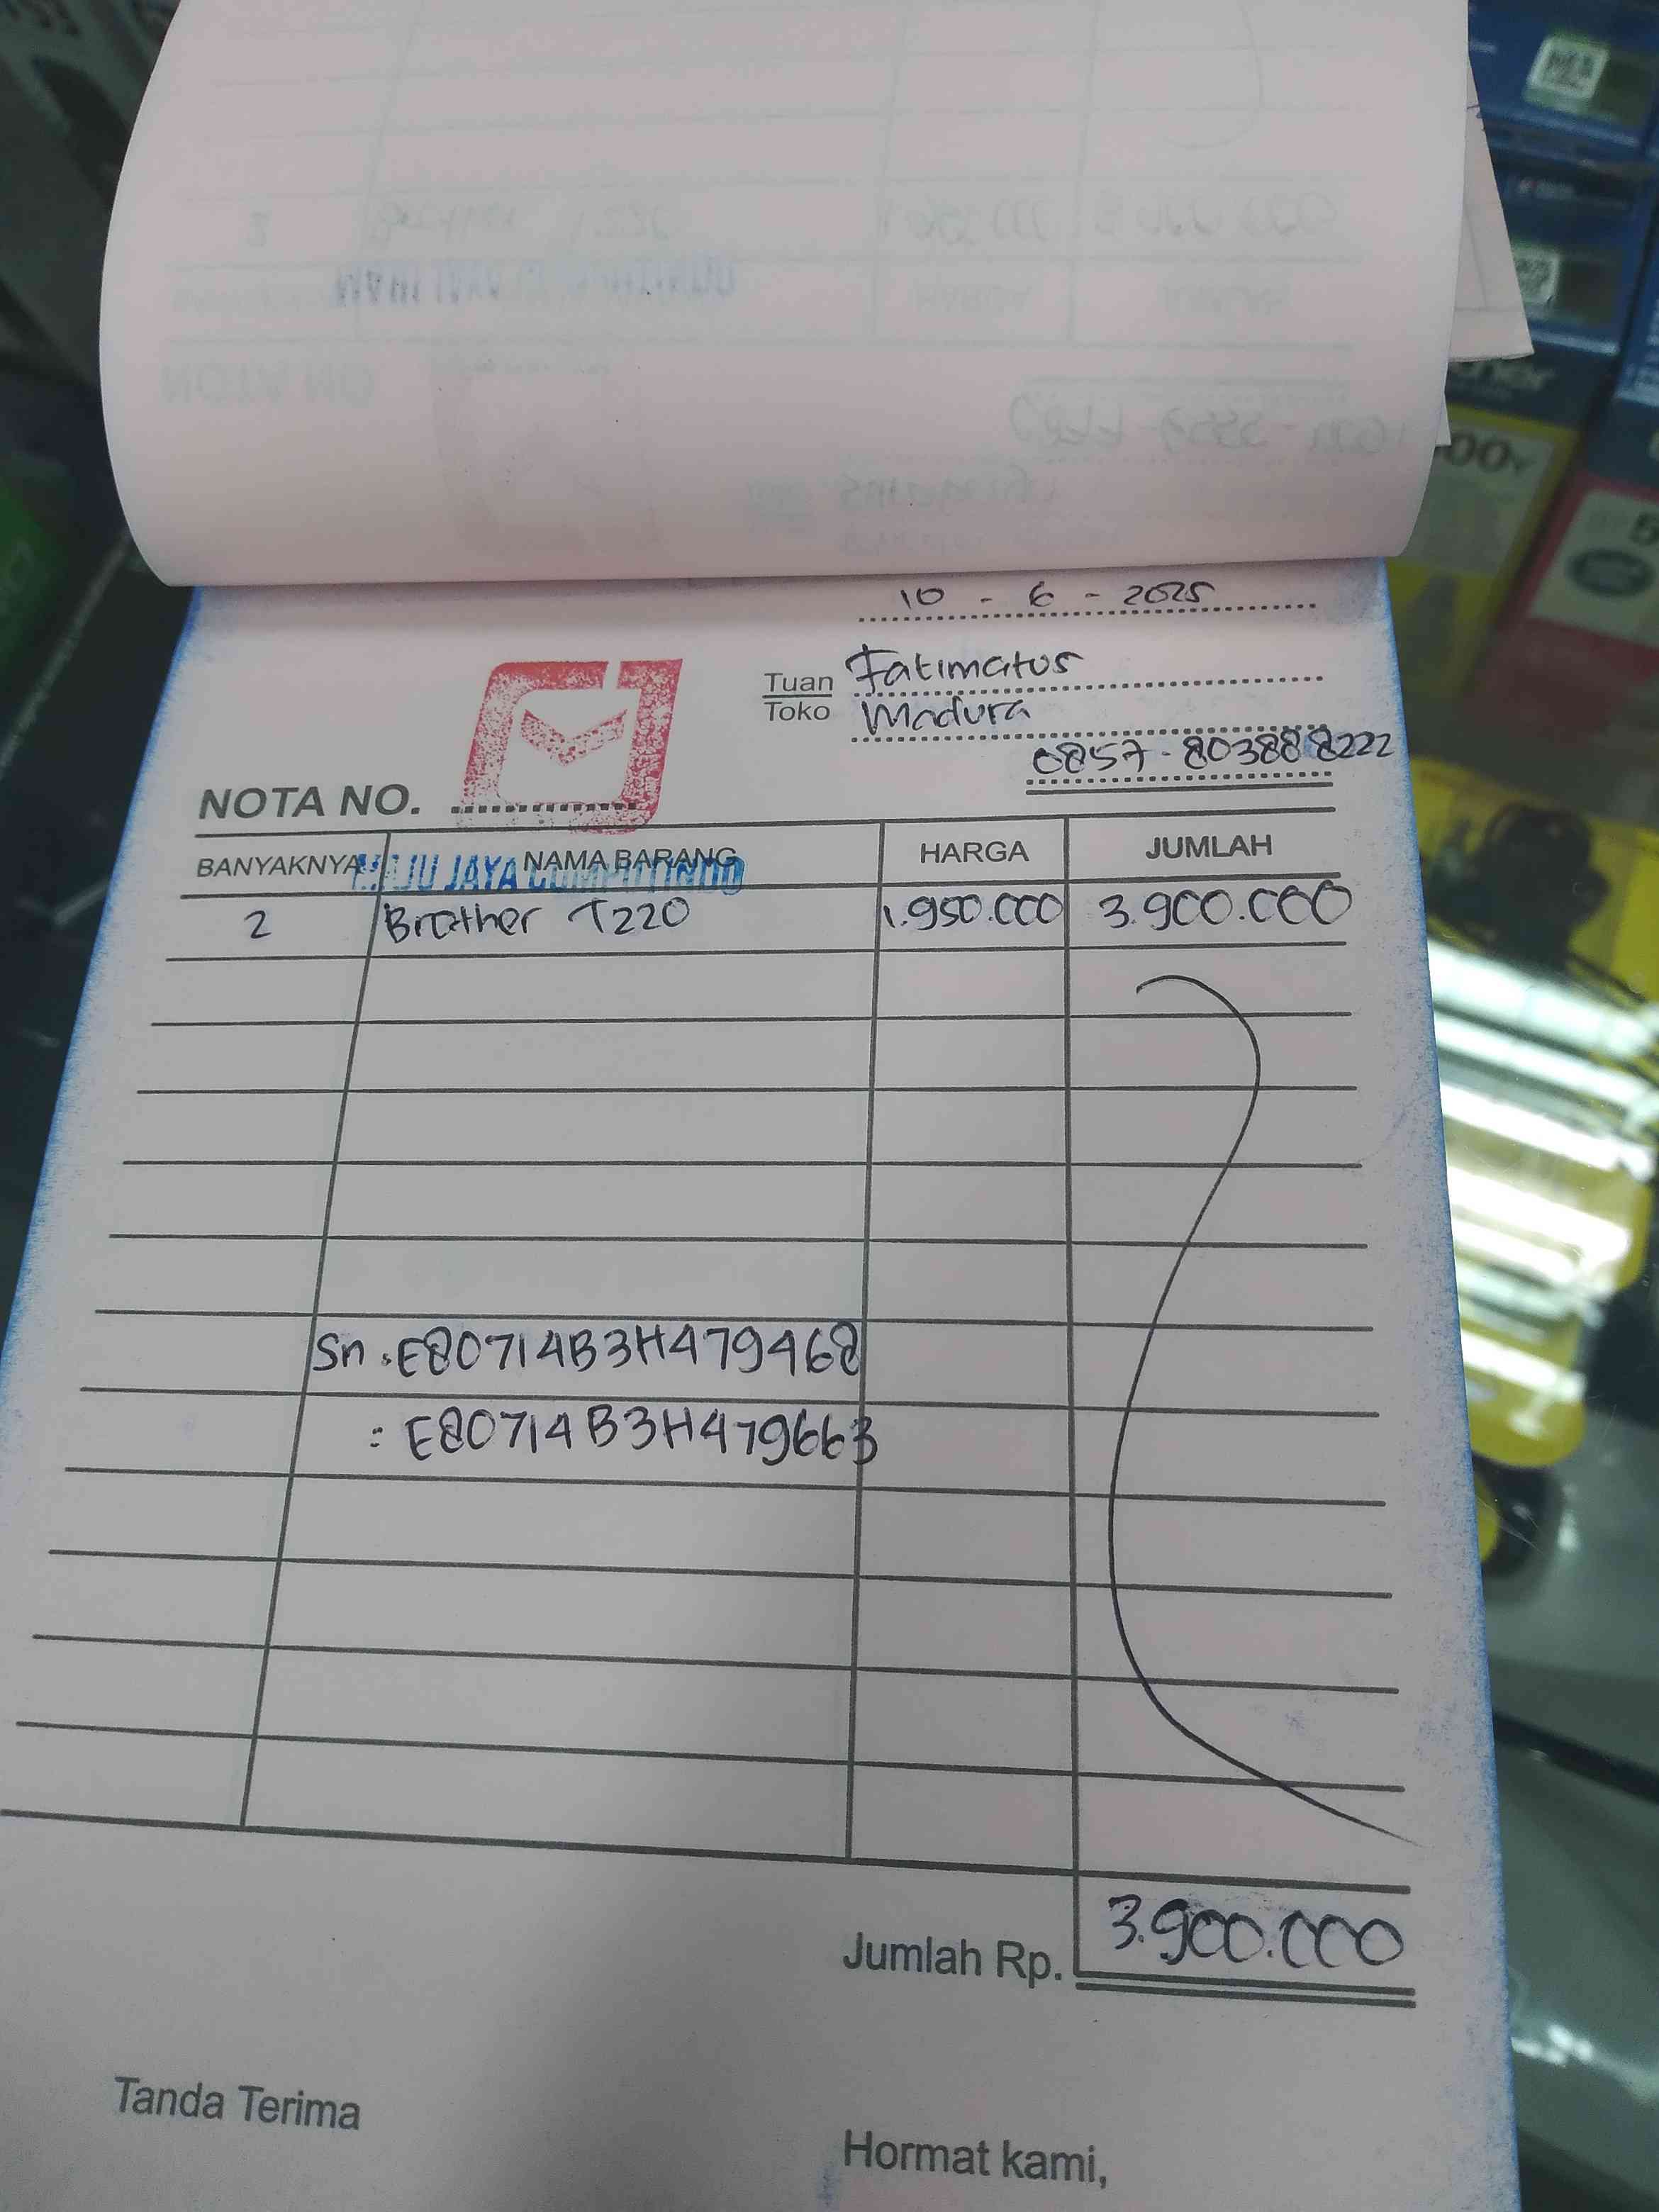 10 - 6 - 2025
Tuan Fatimatus
Toko Madura
0857-803888222
NOTA NO.
BANYAKNYA NAMA BARANG HARGA JUMLAH
MAJU JAYA COMPUTINDO
2 Brother T220 1.950.000 3.900.000
Sn : E80714B3H479468
: E80714B3H479663
Jumlah Rp. 3.900.000
Tanda Terima
Hormat kami,